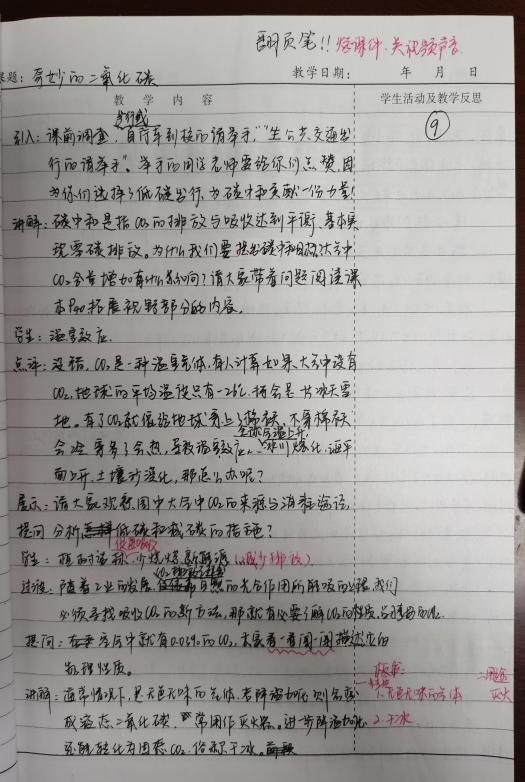 翻页笔!! 
课题:奇妙的二氧化碳 教学日期: 年 月 日
教 学 内 容 学生活动及教学反思
步行或
引入:课前调查,自行车到校的请举手,"坐公共交通出 ⑨
行的请举手"。举手的同学老师要给你们点赞,因
为你们选择了低碳出行,为碳中和贡献一份力量!
讲解:碳中和是指CO₂的排放与吸收达到平衡,基本实
现零碳排放。为什么我们要提出碳中和目标,大气中
CO₂含量增加有什么影响?请大家带着问题阅读课
本P110拓展视野部分的内容。
学生:温室效应.
点评:没错,CO₂是一种温室气体,有人计算如果大气中没有
CO₂,地球的平均温度只有-26℃,将会是一片冰天雪
地。有了CO₂就像给地球穿上了棉袄,不穿棉袄
全球气温上升,
会冷,穿多了会热,导致温室效应,冰川熔化,海平
面上升,土壤沙漠化,那怎么办呢?
展示:请大家观察图中大气中CO₂的来源与消耗途径
提问:分析低碳和减碳的措施?
学生:植树造林,少烧煤,新能源(减少排放)
过渡:随着工业的发展,自然的光合作用所能吸的有限,我们
必须寻找吸收CO₂的新方法,那就有必要了解CO₂的性质
提问:空气中就有0.03%的CO₂,大家看一看闻一闻描述它的
物理性质。
讲解:通常情况下,是无色无味的气体,若降温加压则会变 1.无色无味的气体 灭火
成液态二氧化碳,常用作灭火器。进一步降温加压 2.干冰
还能转化为固态CO₂,俗称干冰。